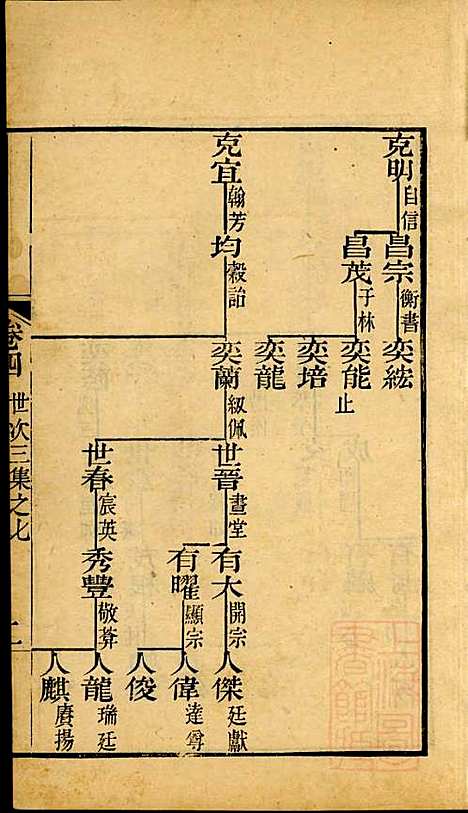 克明 自信
昌宗 衡書
奕紘
昌茂 子林
奕能 止
奕培
奕龍
克宜 翰芳
均 穀詒
奕蘭 紉佩
世晉 晝堂
有大 開宗
人傑 廷獻
有曜 顯宗
人偉 達尊
人俊
世春 宸英
秀豐 敬莽
人龍 瑞廷
人麒 賡揚
卷四 世次三集之七 二